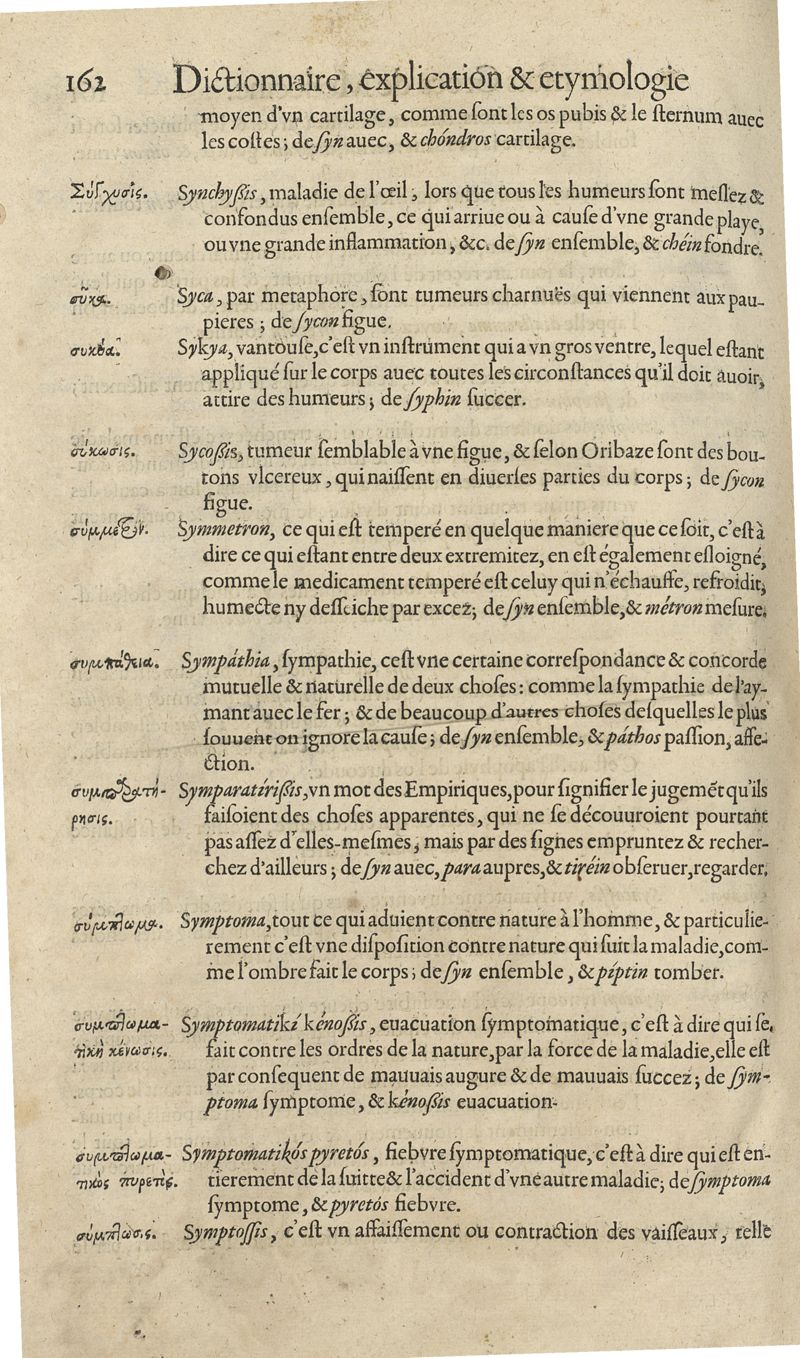 162 Dictionnaire, explication & etymologie
moyen d'vn cartilage, comme ſont les os pubis & le ſternum auec
les coſtes; de ſyn auec, & chóndros cartilage.
Σύγχυσις. Synchyſis, maladie de l'œil, lors que tous les humeurs ſont meſlez &
confondus enſemble, ce qui arriue ou à cauſe d'vne grande playe,
ou vne grande inflammation, &c. de ſyn enſemble, & chéin fondre.
σῦκα. Syca, par metaphore, ſont tumeurs charnuës qui viennent aux pau-
pieres; de ſycon figue.
συκύα. Sykya, vantouſe, c'eſt vn inſtrument qui a vn gros ventre, lequel eſtant
appliqué ſur le corps auec toutes les circonſtances qu'il doit auoir,
attire des humeurs; de ſyphin ſuccer.
σύκωσις. Sycoſis, tumeur ſemblable à vne figue, & ſelon Oribaze ſont des bou-
tons vlcereux, qui naiſſent en diuerſes parties du corps; de ſycon
figue.
σύμμετρον. Symmetron, ce qui eſt temperé en quelque maniere que ce ſoit, c'eſt à
dire ce qui eſtant entre deux extremitez, en eſt également eſloigné,
comme le medicament temperé eſt celuy qui n'échauffe, refroidit,
humecte ny deſſeiche par excez; de ſyn enſemble, & métron meſure.
συμπάθεια. Sympáthia, ſympathie, ceſt vne certaine correſpondance & concorde
mutuelle & naturelle de deux choſes: comme la ſympathie de l'ay-
mant auec le fer; & de beaucoup d'autres choſes deſquelles le plus
ſouuent on ignore la cauſe; de ſyn enſemble, & páthos paſſion, affe-
ction.
συμπαρατή- Symparatíriſis, vn mot des Empiriques, pour ſignifier le jugemēt qu'ils
ρησις. faiſoient des choſes apparentes, qui ne ſe découuroient pourtant
pas aſſez d'elles-meſmes, mais par des ſignes empruntez & recher-
chez d'ailleurs; de ſyn auec, para aupres, & tiréin obſeruer, regarder.
σύμπτωμα. Symptoma, tout ce qui aduient contre nature à l'homme, & particulie-
rement c'eſt vne diſpoſition contre nature qui ſuit la maladie, com-
me l'ombre fait le corps; de ſyn enſemble, & píptin tomber.
συμπτωμα- Symptomatikí kénoſis, euacuation ſymptomatique, c'eſt à dire qui ſe
τικὴ κένωσις. fait contre les ordres de la nature, par la force de la maladie, elle eſt
par conſequent de mauuais augure & de mauuais ſuccez; de ſym-
ptoma ſymptome, & kénoſis euacuation.
συμπτωμα- Symptomatikós pyretós, fiebvre ſymptomatique, c'eſt à dire qui eſt en-
τικὸς πυρετὸς. tierement de la ſuitte & l'accident d'vne autre maladie; de ſymptoma
ſymptome, & pyretós fiebvre.
σύμπτωσις. Symptoſſis, c'eſt vn affaiſſement ou contraction des vaiſſeaux, telle